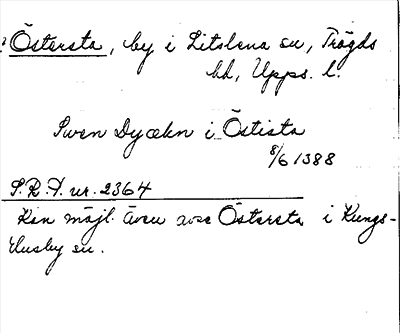 ? Östersta, by i Litslena sn, Trögds
hd, Upps. l.
Swen Dyækn i Östista
8/6 1388
S.R.F. nr. 2364
Kan möjl. även avse Östersta i Kungs-
Husby sn.